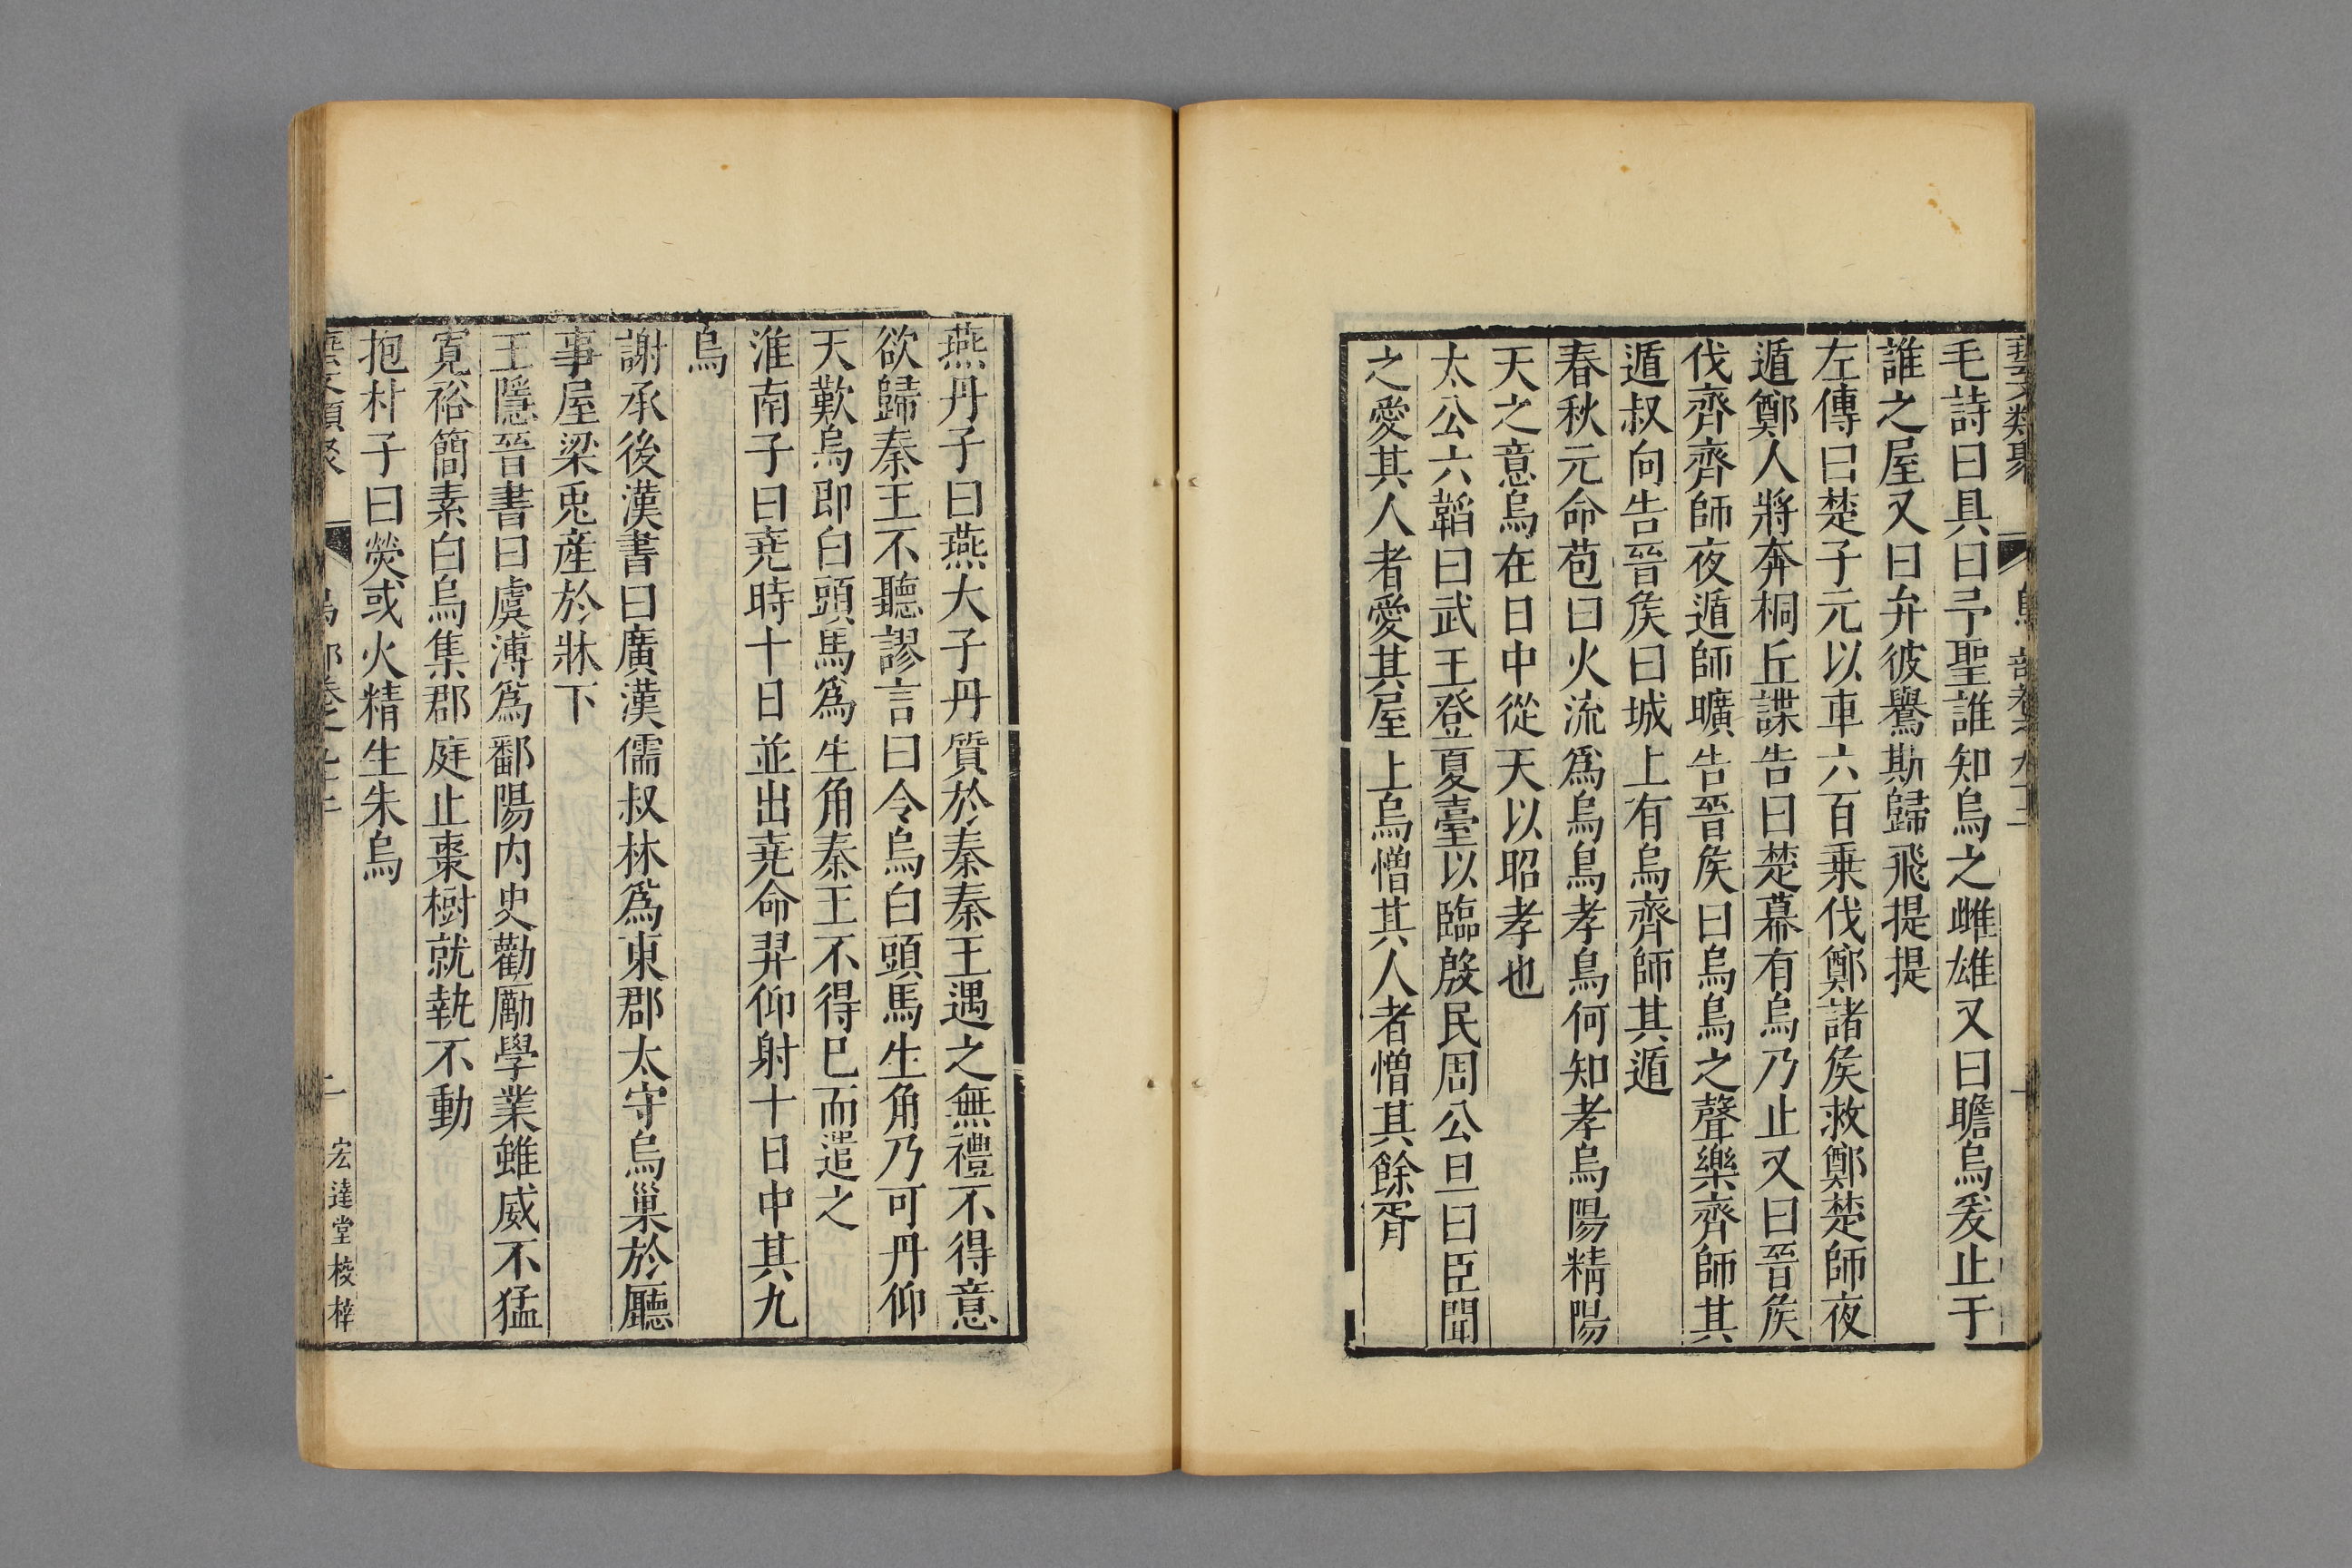 藝文類聚 鳥部卷九十二 一
毛詩曰具曰予聖誰知烏之雌雄又曰瞻烏爰止于
誰之屋又曰弁彼鸒斯歸飛提提
左傳曰楚子元以車六百乗伐鄭諸矦救鄭楚師夜
遁鄭人將奔桐丘諜告曰楚幕有烏乃止又曰晉矦
伐齊齊師夜遁師曠告晉矦曰烏烏之聲樂齊師其
遁叔向告晉矦曰城上有烏齊師其遁
春秋元命苞曰火流爲烏烏孝鳥何知孝烏陽精陽
天之意烏在日中從天以昭孝也
太公六韜曰武王登夏臺以臨殷民周公旦曰臣聞
之愛其人者愛其屋上烏憎其人者憎其餘胥
燕丹子曰燕大子丹質於秦秦王遇之無禮不得意
欲歸秦王不聽謬言曰令烏白頭馬生角乃可丹仰
天歎烏即白頭馬爲生角秦王不得巳而遣之
淮南子曰尭時十日並出尭命羿仰射十日中其九
烏
謝承後漢書曰廣漢儒叔林爲東郡太守烏巢於廳
事屋梁兎産於牀下
王隱晉書曰虞溥爲鄱陽内史勸勵學業雖威不猛
寛裕簡素白烏集郡庭止棗樹就執不動
抱朴子曰熒或火精生朱烏
藝文類聚 鳥部卷之九十二 二 宏達堂校梓